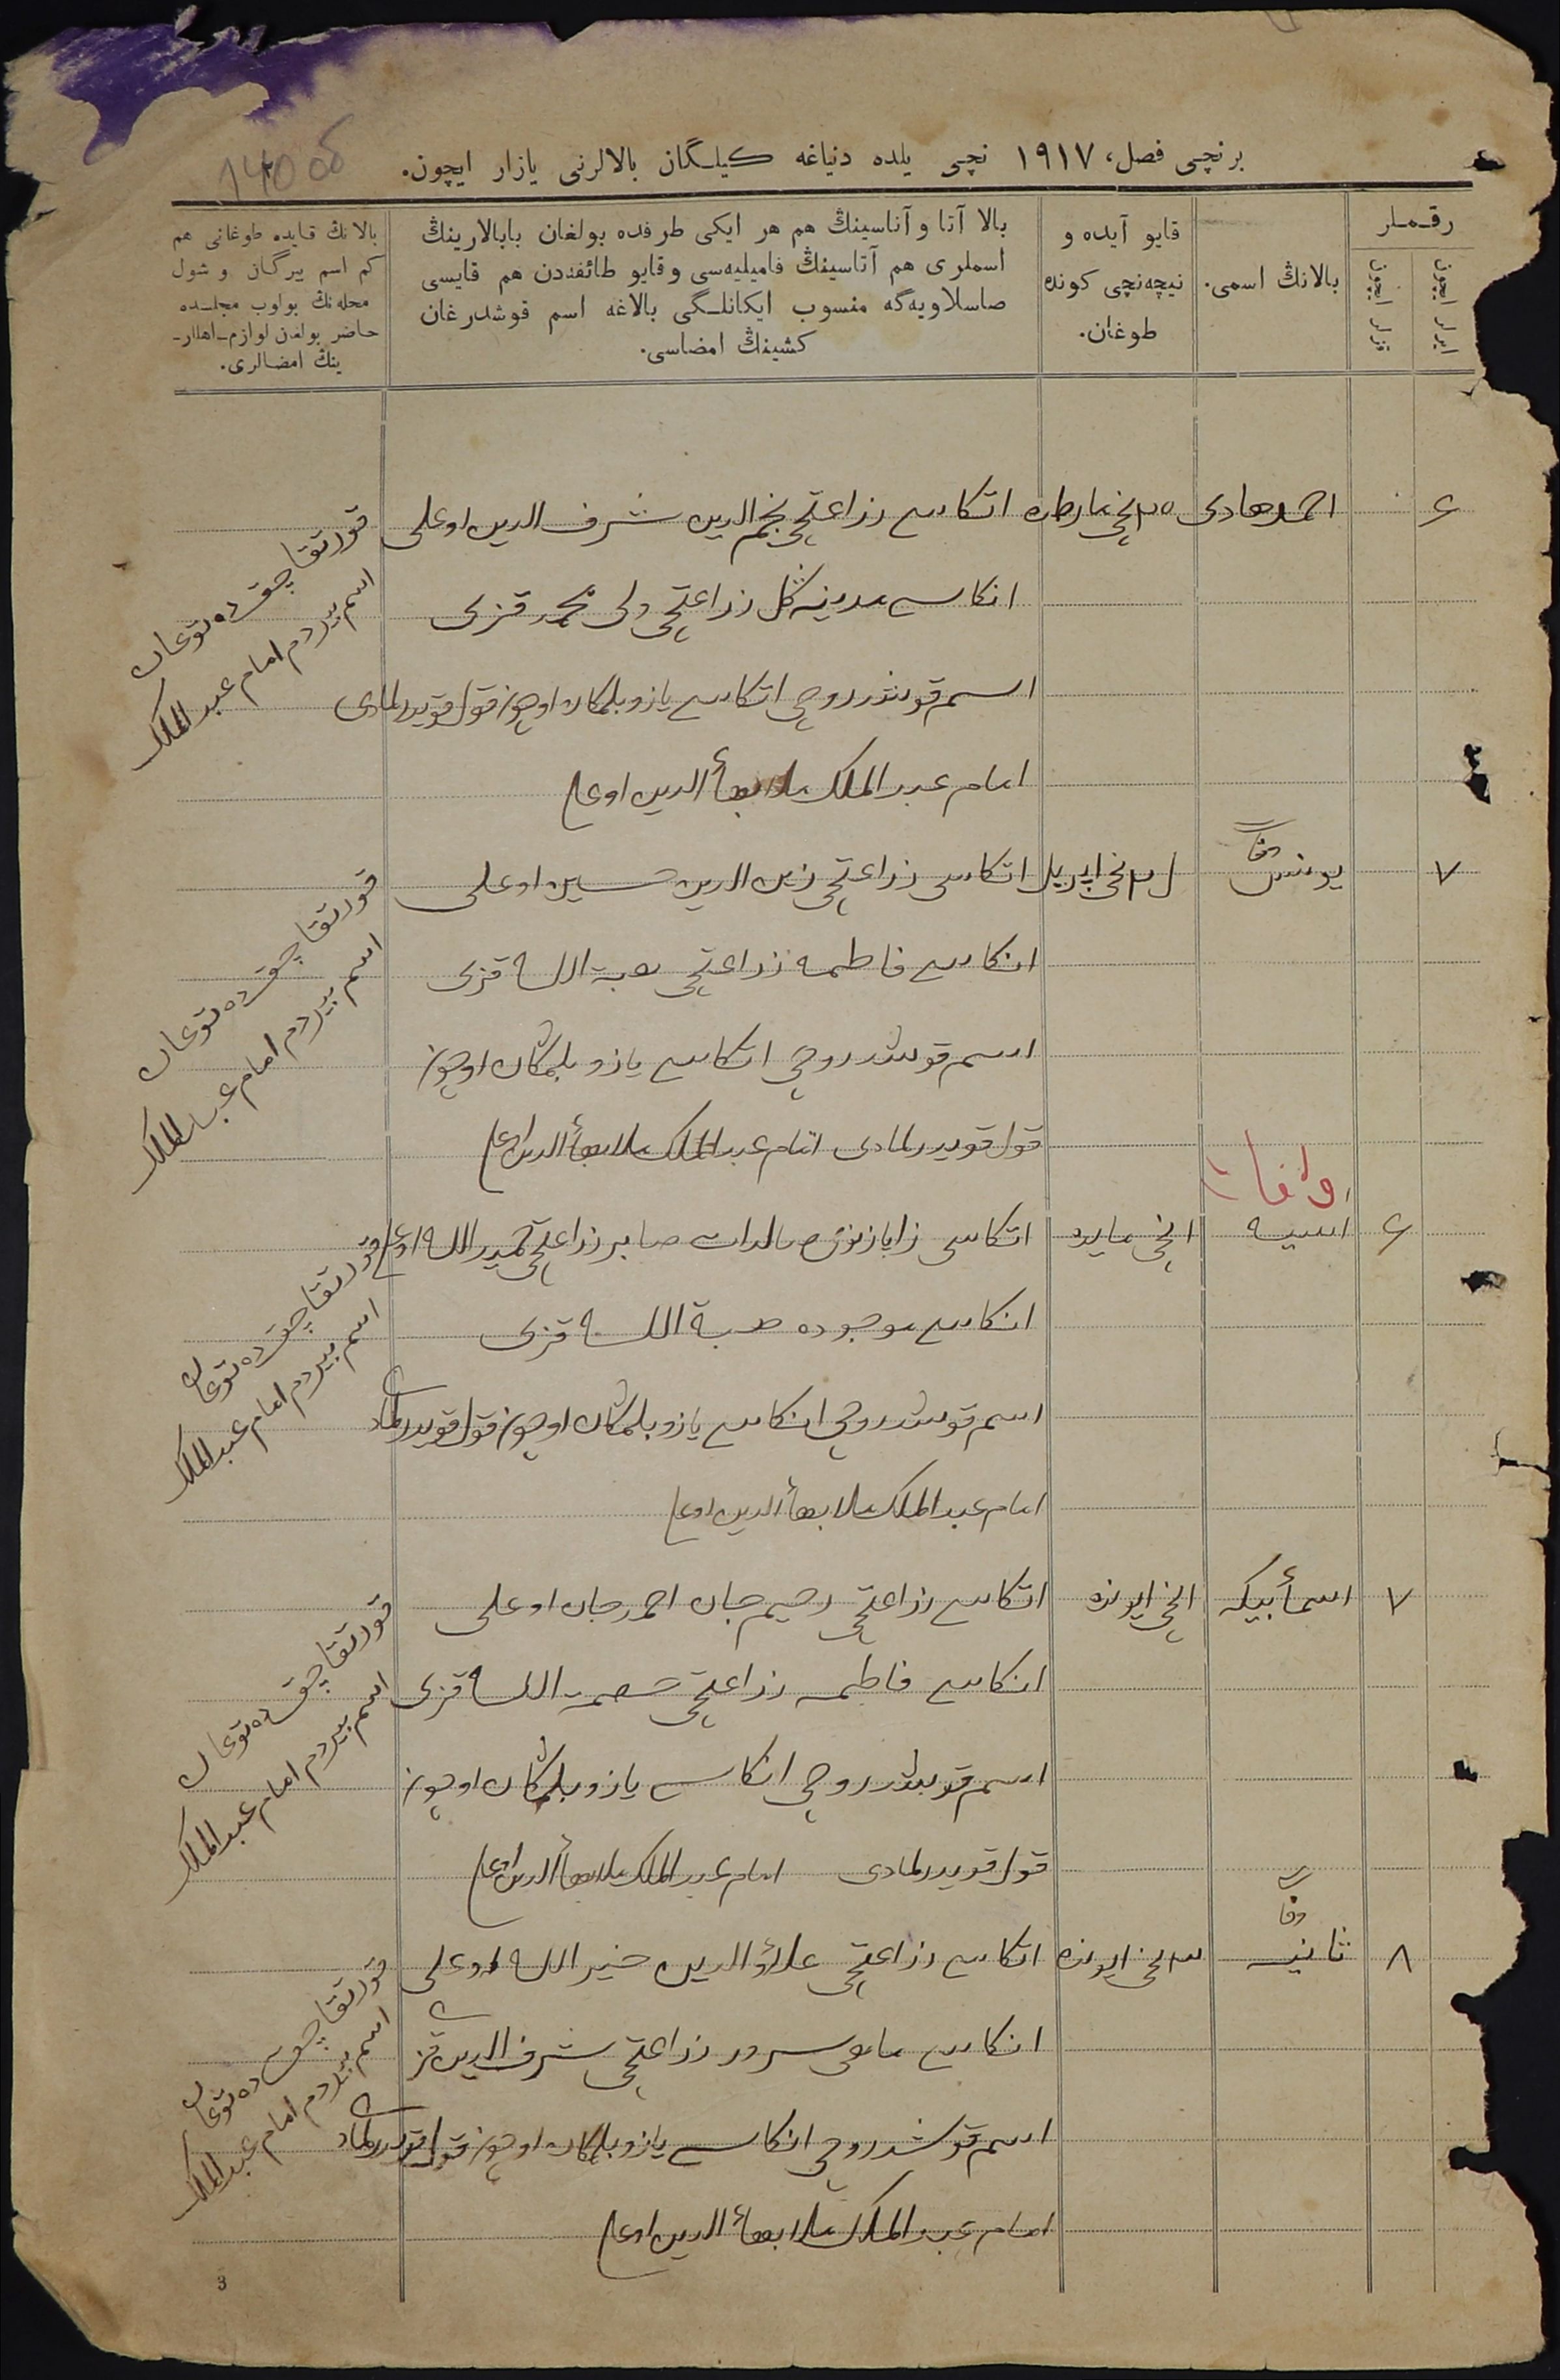 140 об
برنچی فصل، ١٩١٧ نچی یلده دنیاغه کیلگان بالالرنی یازار ایچون.
رقملر
ایرلر ایچون
قزلر ایچون
بالانڭ اسمی.
قایو آیده و
نیچه‌نچی کونده
طوغان.
بالا آتا و آناسینڭ هم هر ایکی طرفده بولغان بابالارینڭ
اسملری هم آتاسینڭ فامیلیه‌سی و قایو طائفه‌دن هم قایسی
صاسلاویه‌گه منسوب ایکانلگی بالاغه اسم قوشدرغان
کشینڭ امضاسی.
بالانڭ قایده طوغانی هم
کم اسم بیرگان و شول
محله‌نڭ بولوب مجلسده
حاضر بولغان لوازم اهللر
ینڭ امضالری.
٦ احمدهادی ٢٥نچی مارطده اتکاسی زراعتچی نجم الدین شرف الدین اوغلی
انکاسی مدینه گل زراعتچی ولی محمد قزی
اسم قوشدروچی اتکاسی یازو بلمگان اوچون قول قویدرلمادی
امام عبد الملک ملا بهأ الدین اوغلی
قورتقاچقده توغان
اسم بیردم امام عبد الملک
٧ یونس وفات اپریل اتکاسی زراعتچی زین الدین حسین اوغلی
انکاسی فاطمه زراعتچی هبة الله قزی
اسم قوشدروچی اتکاسی یازو بلمگان اوچون
قول قویدرلمادی امام عبد الملک ملا بهأ الدین اوغلی
قورتقاچقده توغان
اسم بیردم امام عبد الملک
وفات
٦ اسیه ١نچی مایده اتکاسی زاپازنوی صالدات صابر زراعتچی حمید الله اوغلی
انکاسی موجوده هبة الله قزی
اسم قوشدروچی انکاسی یازو بلمگان اوچون قول قویدرلمادی
امام عبد الملک ملا بهأ الدین اوغلی
قورتقاچقده توغان
اسم بیردم امام عبد الملک
٧ اسمأبیکه ١نچی ایونده اتکاسی زراعتچی رحیم جان احمد جان اوغلی
انکاسی فاطمه زراعتچی الله قزی
اسم قوشدروچی انکاسی یازو بلمگان اوچون
قول قویدرلمادی امام عبد الملک ملا بهأ الدین اوغلی
قورتقاچقده توغان
اسم بیردم امام عبد الملک
وفات
٨ ثانیه ٣نچی ایونده اتکاسی زراعتچی علاؤ الدین خیر الله اوغلی
انکاسی ماهی سرور زراعتچی شرف الدین قزی
اسم قوشدروچی انکاسی یازو بلمگان اوچون قول قویدرلمادی
امام عبد الملک ملا بهأ الدین اوغلی
قورتقاچقده توغان
اسم بیردم امام عبد الملک
3